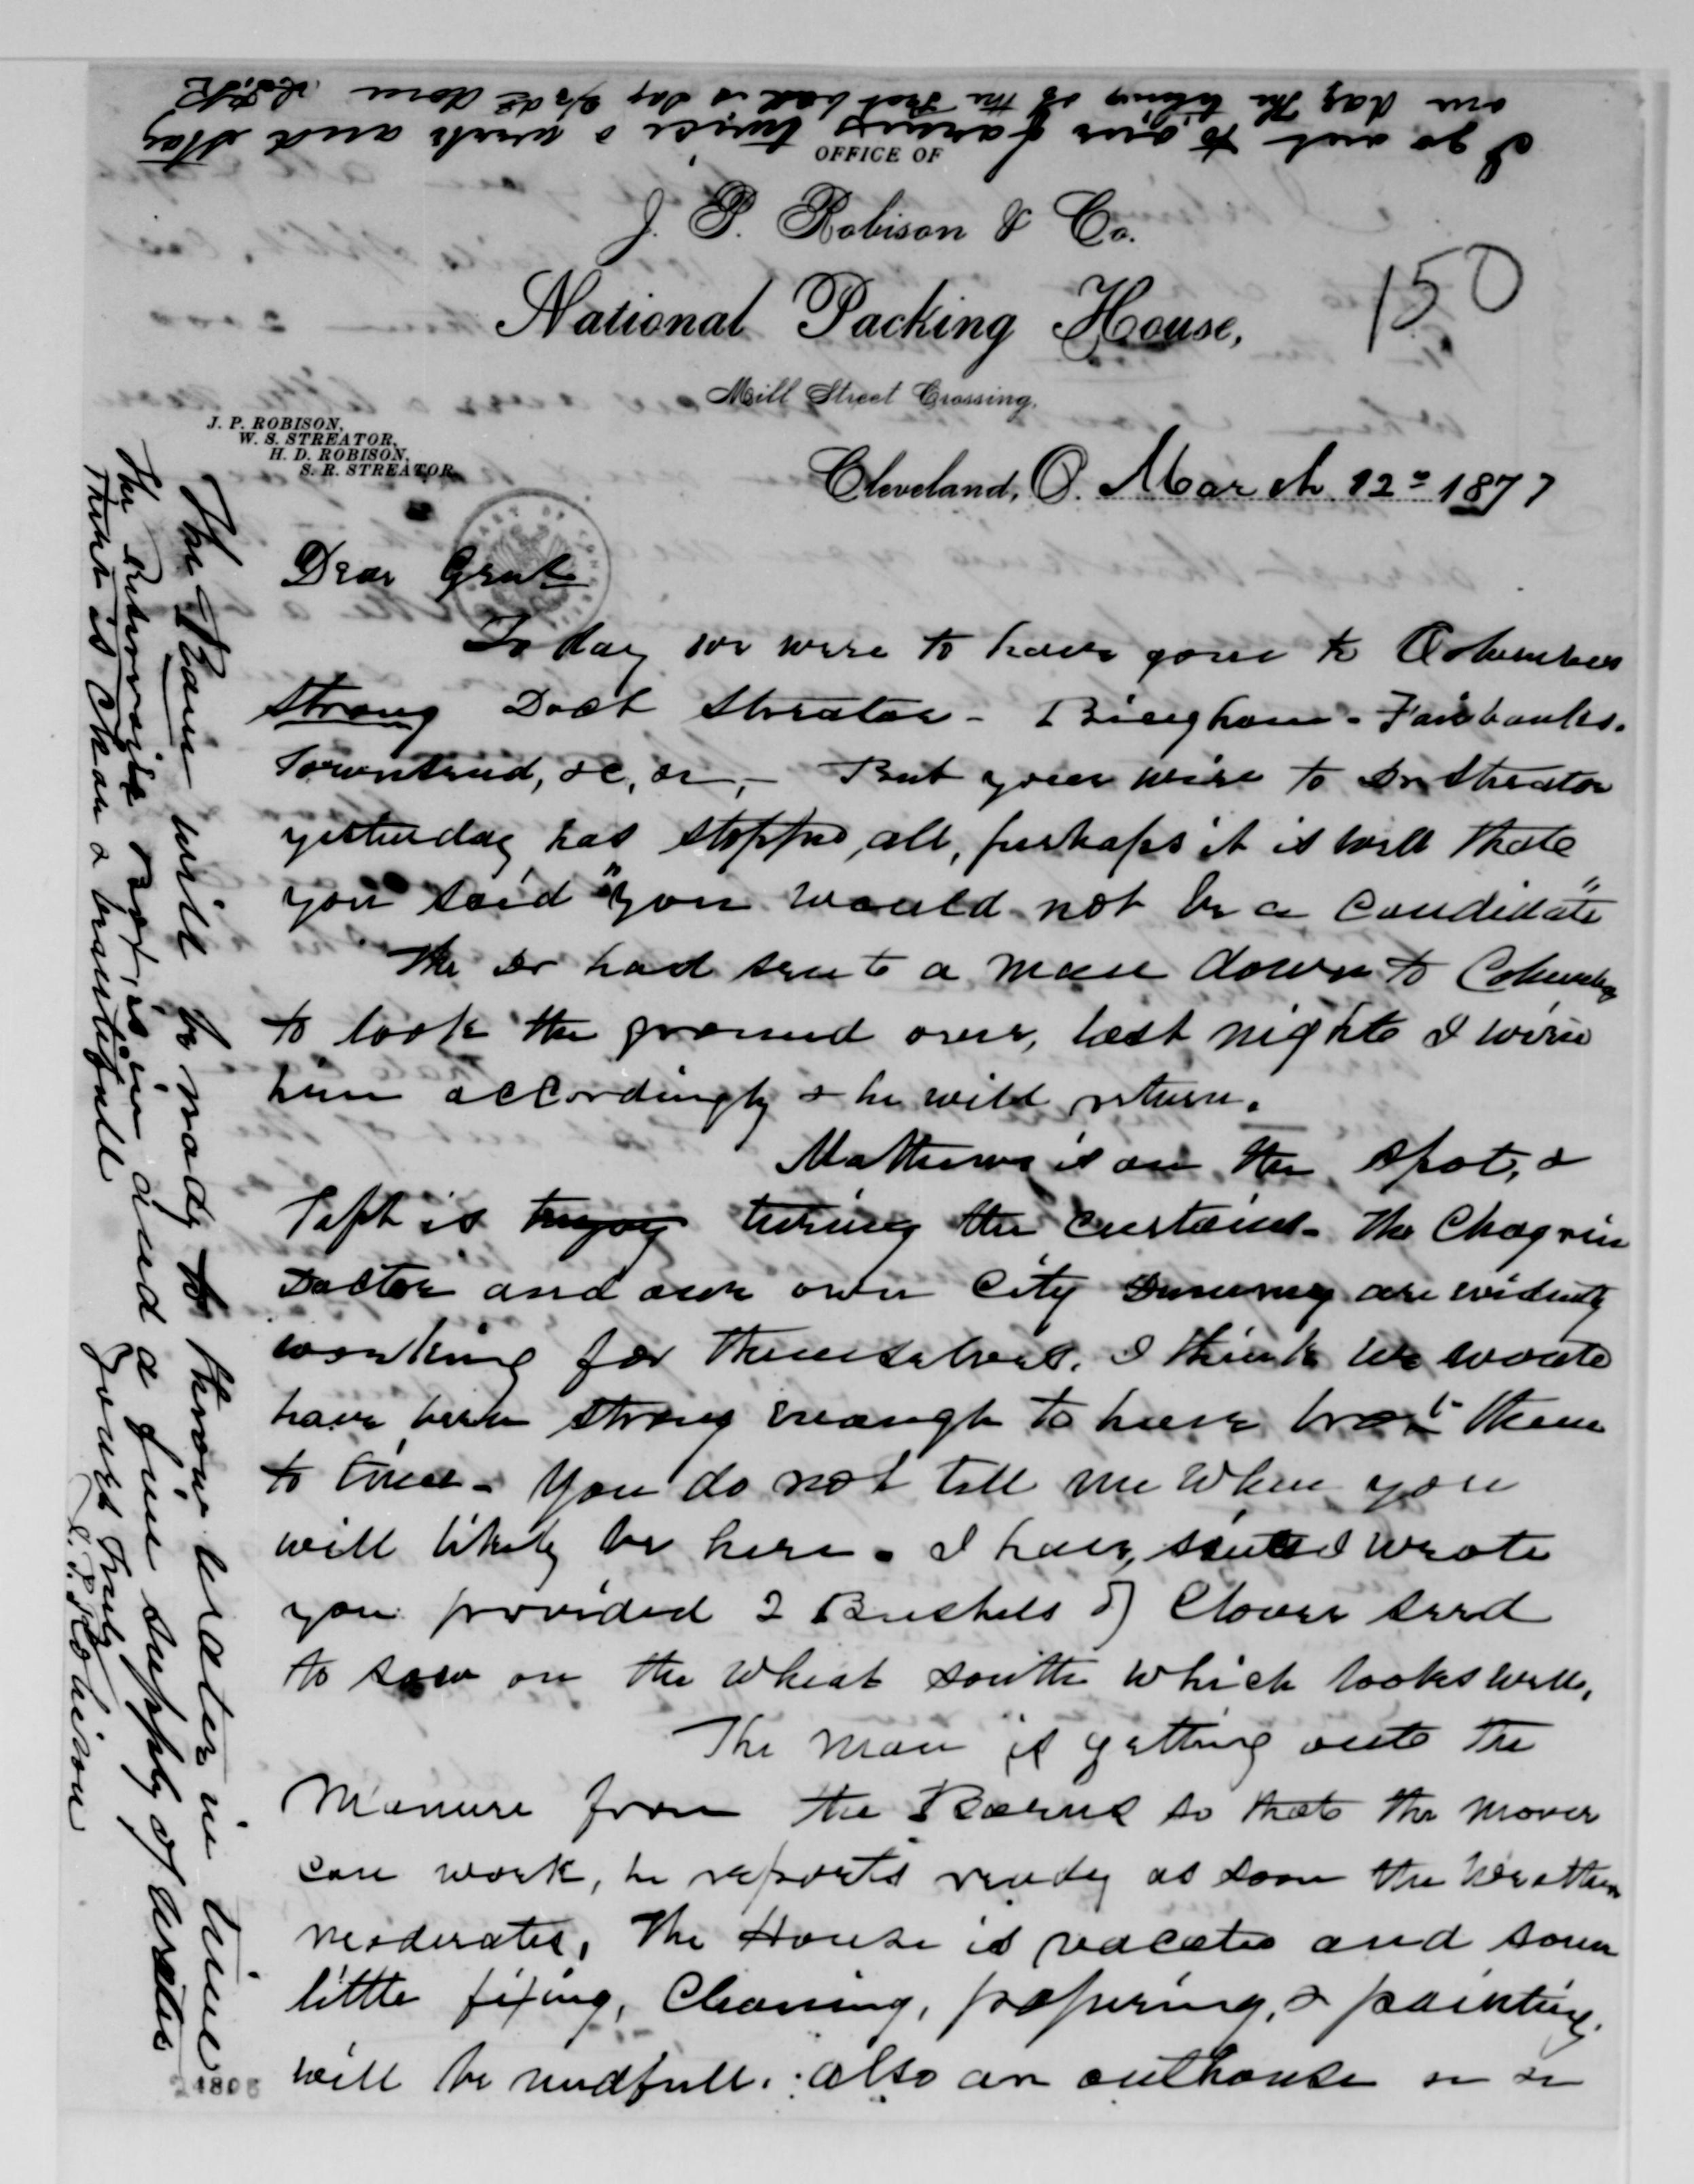 I go out to our farms twice a week and stay
one day the
OFFICE OF
J. P. Robison & Co.
National Packing House,
Mill Street Crossing.
150
J. P. ROBISON,
W. S. STREATOR,
H. D. ROBISON,
S. R. STREATOR.
Cleveland, O. March 12 1877
Dear Genl
To day we were to have gone to Columbus
strong Doct Streator - Bingham - Fairbanks.
Townsend, &c, &c, - But your wire to Dr Streator
yesterday has stopped all, perhaps it is well that
you said "you would not be a Candidate"
The Dr had sent a man down to Columbus
to look the ground over, last night I wired
him accordingly & he will return.
Mathews is on the spot, &
Taft is trying the curtains - The Chagrin
Doctor and our own City are evidently
working for themselves. I think we would
have been strong enough to have brot them
to time - You do not tell me when you
will likely be here - I have, since I wrote
you provided 2 Bushels of Clover seed
to sow on the wheat south which looks well,
The man is getting out the
Manure from the Barns so that the mover
can work, he reports ready as soon the weather
moderates, The House is vacated and some
little fixing, Cleaning, papering, & painting,
will be needfull. also an outhouse or
The Ram will be ready to throw water in time
the Reservoir is in and a fine supply of water
that is clean & beautifull
Yours Truly
J. P. Robison
24808